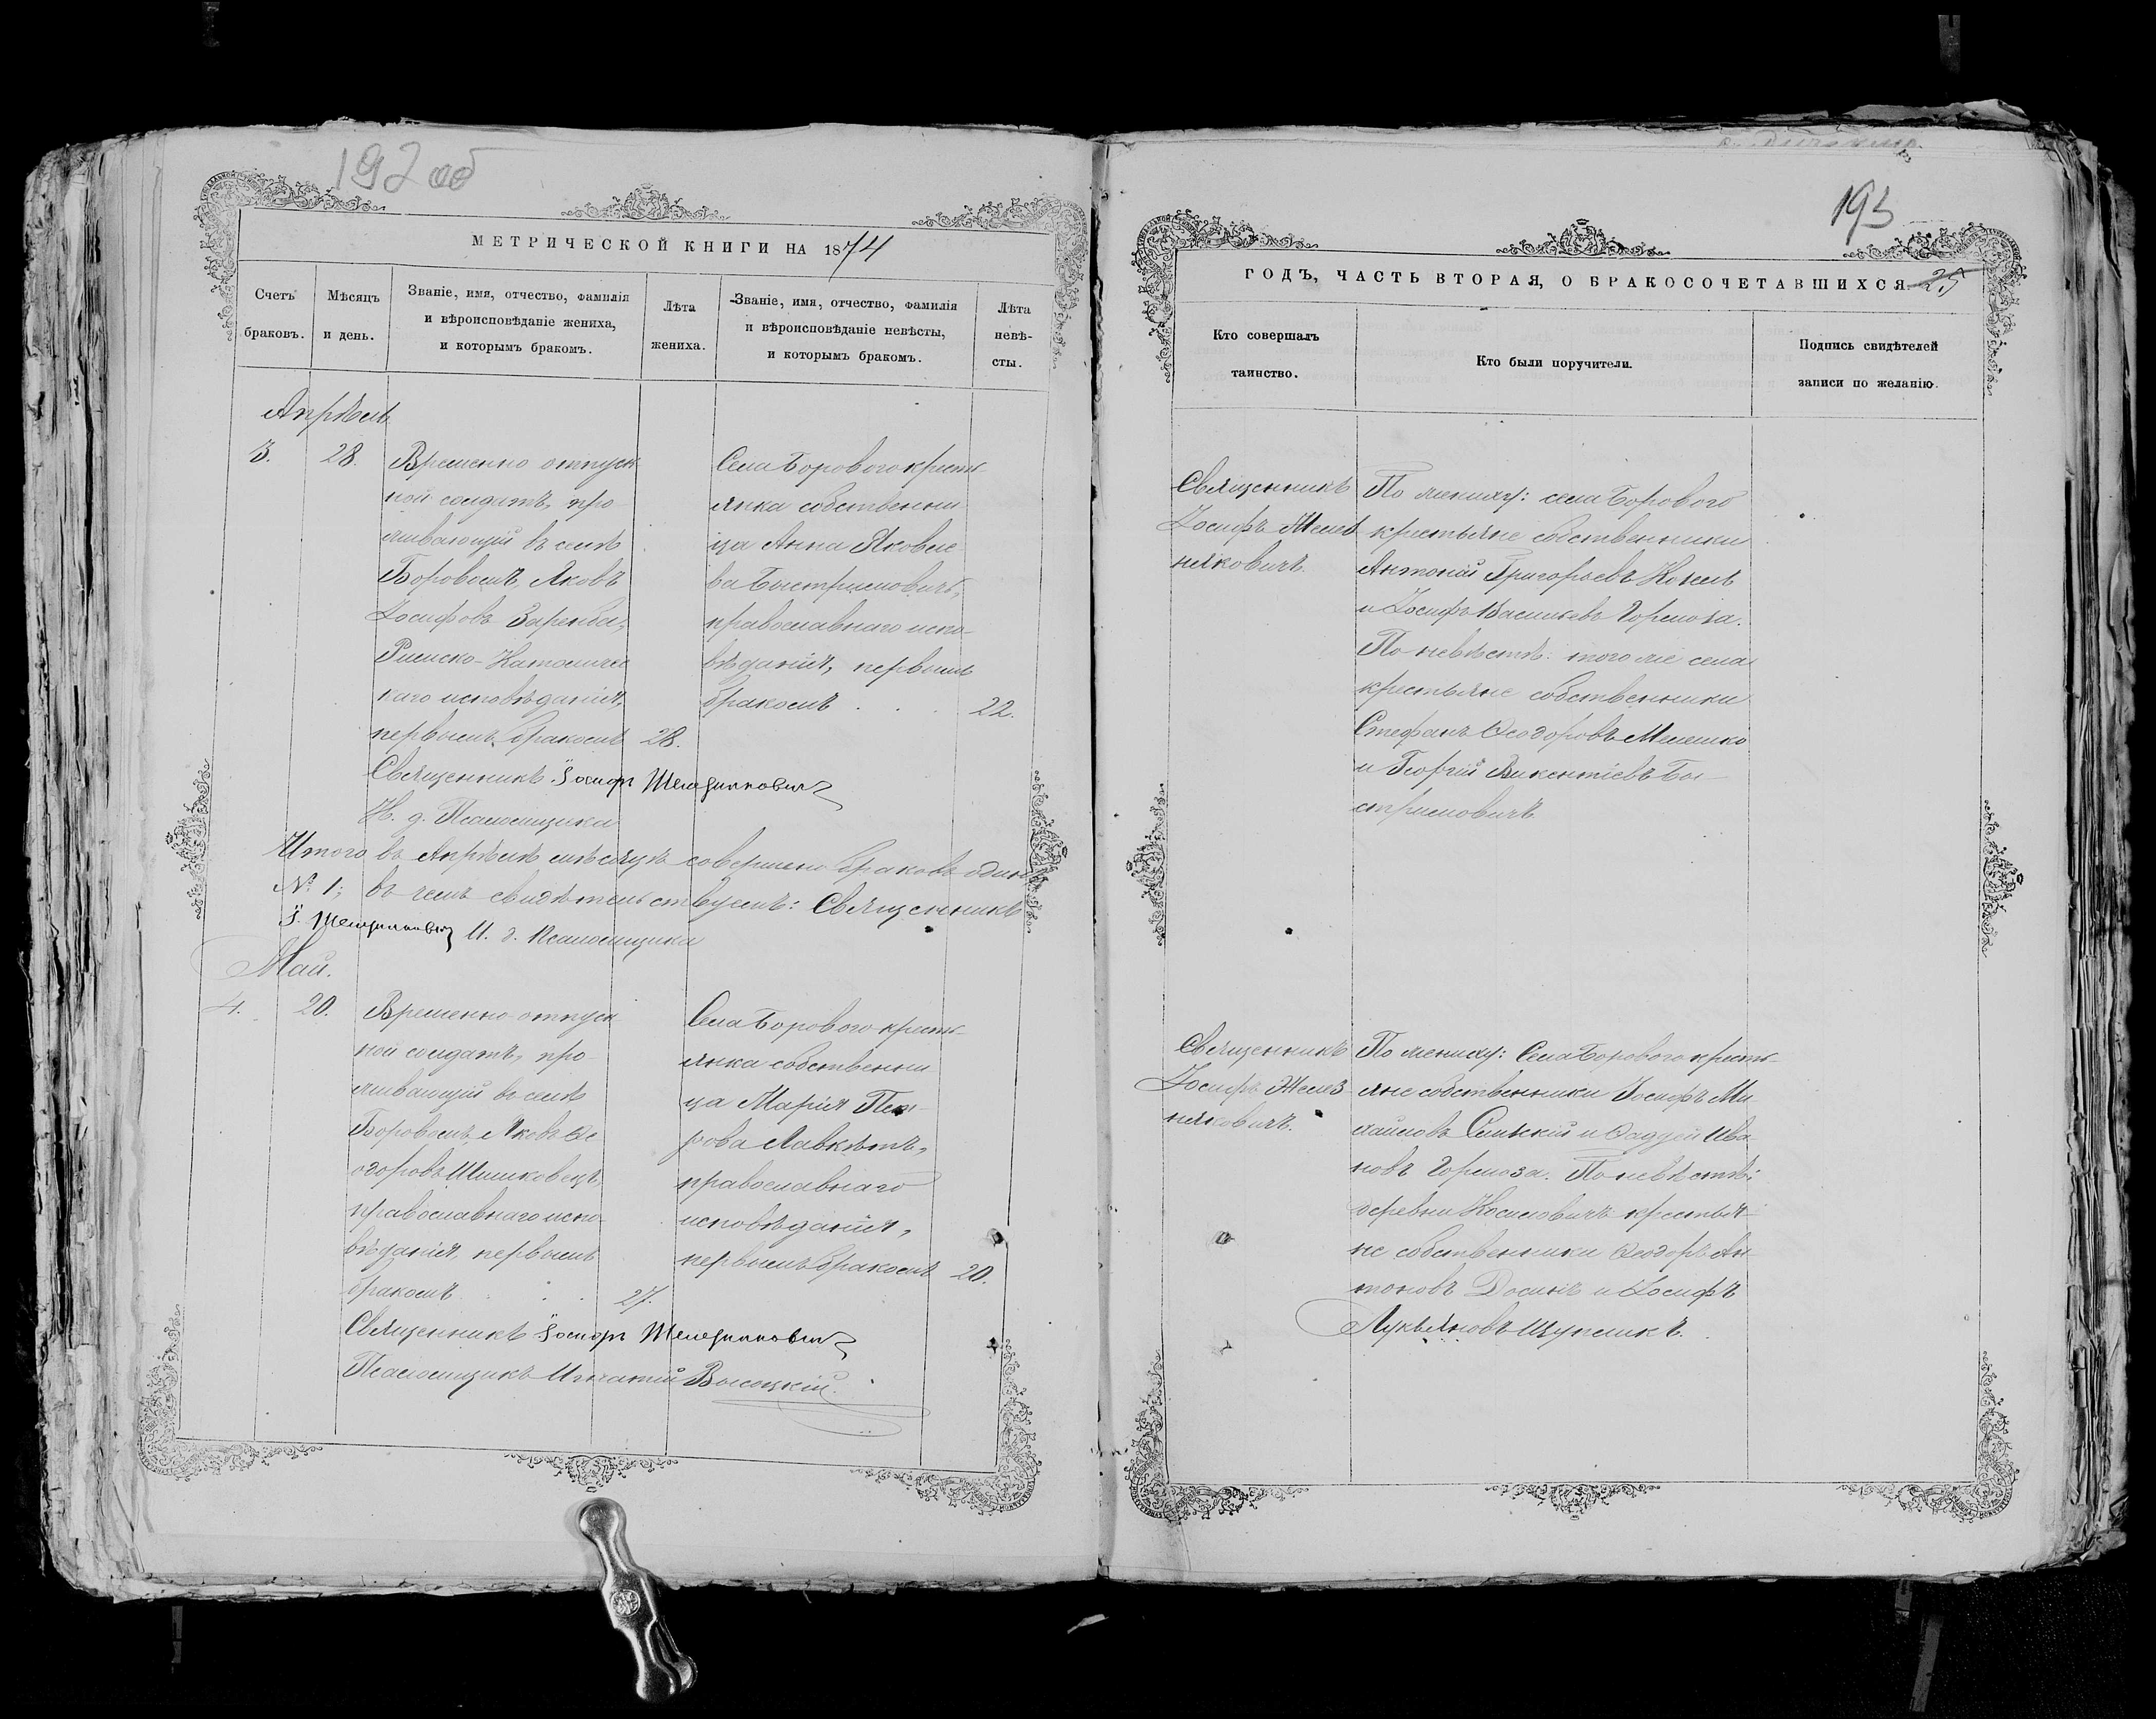 192 об
МЕТРИЧЕСКОЙ КНИГИ НА 1874
Счетъ браковъ.
Мѣсяцъ и день.
Званіе, имя, отчество, фамилія и вѣроисповѣданіе жениха, и которымъ бракомъ.
Лѣта жениха.
Званіе, имя, отчество, фамилія и вѣроисповѣданіе невѣсты, и которымъ бракомъ.
Лѣта невѣ-
сты.
Апрѣль
3.
28.
Временно отпуск
ной солдатъ, про
живающій въ селѣ
Боровомъ, Яковъ
Іосифовъ Заремба,
Римско-Католичес
каго исповѣданія,
первымъ бракомъ
28.
Села Борового кресть
янка собственни
ца Анна Яковле
ва Быстримовичъ,
православнаго испо-
вѣданія, первымъ
бракомъ . . .
22.
Священникъ Іосифъ Железняковичъ
И. д. Псаломщика
Итого въ Апрѣлѣ мѣсяцѣ совершено браковъ одинъ
№ 1; въ чемъ свидѣтельствуемъ: Священникъ
І. Железняковичъ И. д. Псаломщика
Май.
4.
20.
Временно-отпуск
ной солдатъ, про
живающій въ селѣ
Боровомъ, Яковъ Ѳе
одоровъ Шишковецъ,
православнаго испо-
вѣданія, первымъ
бракомъ . . .
27.
Села Борового кресть
янка собственни
ца Марія Пет-
рова Лавкѣтъ,
православнаго
исповѣданія,
первымъ бракомъ
20.
Священникъ Іосифъ Железняковичъ
Псаломщикъ Игнатій Высоцкій.
193
ГОДЪ, ЧАСТЬ ВТОРАЯ, О БРАКОСОЧЕТАВШИХСЯ 25
Кто совершалъ таинство.
Кто были поручители.
Подпись свидѣтелей записи по желанію.
Священникъ
Іосифъ Желез
няковичъ.
По жениху: села Борового
крестьяне собственники
Антоній Григорьевъ
и Іосифъ Васильевъ Гормоза.
По невѣстѣ: того же села
крестьяне собственники
Стефанъ Ѳеодоровъ Мелешко
и Георгій Викентіевъ Бы-
стримовичъ
Священникъ
Іосифъ Желез
няковичъ.
По жениху: Села Борового кресть
яне собственники Іосифъ Ми
хайловъ и Ѳаддей Ива
новъ Гормоза. По невѣстѣ:
деревни крестья-
не собственники Ѳеодоръ Ан
тоновъ и Іосифъ
Лукьяновъ